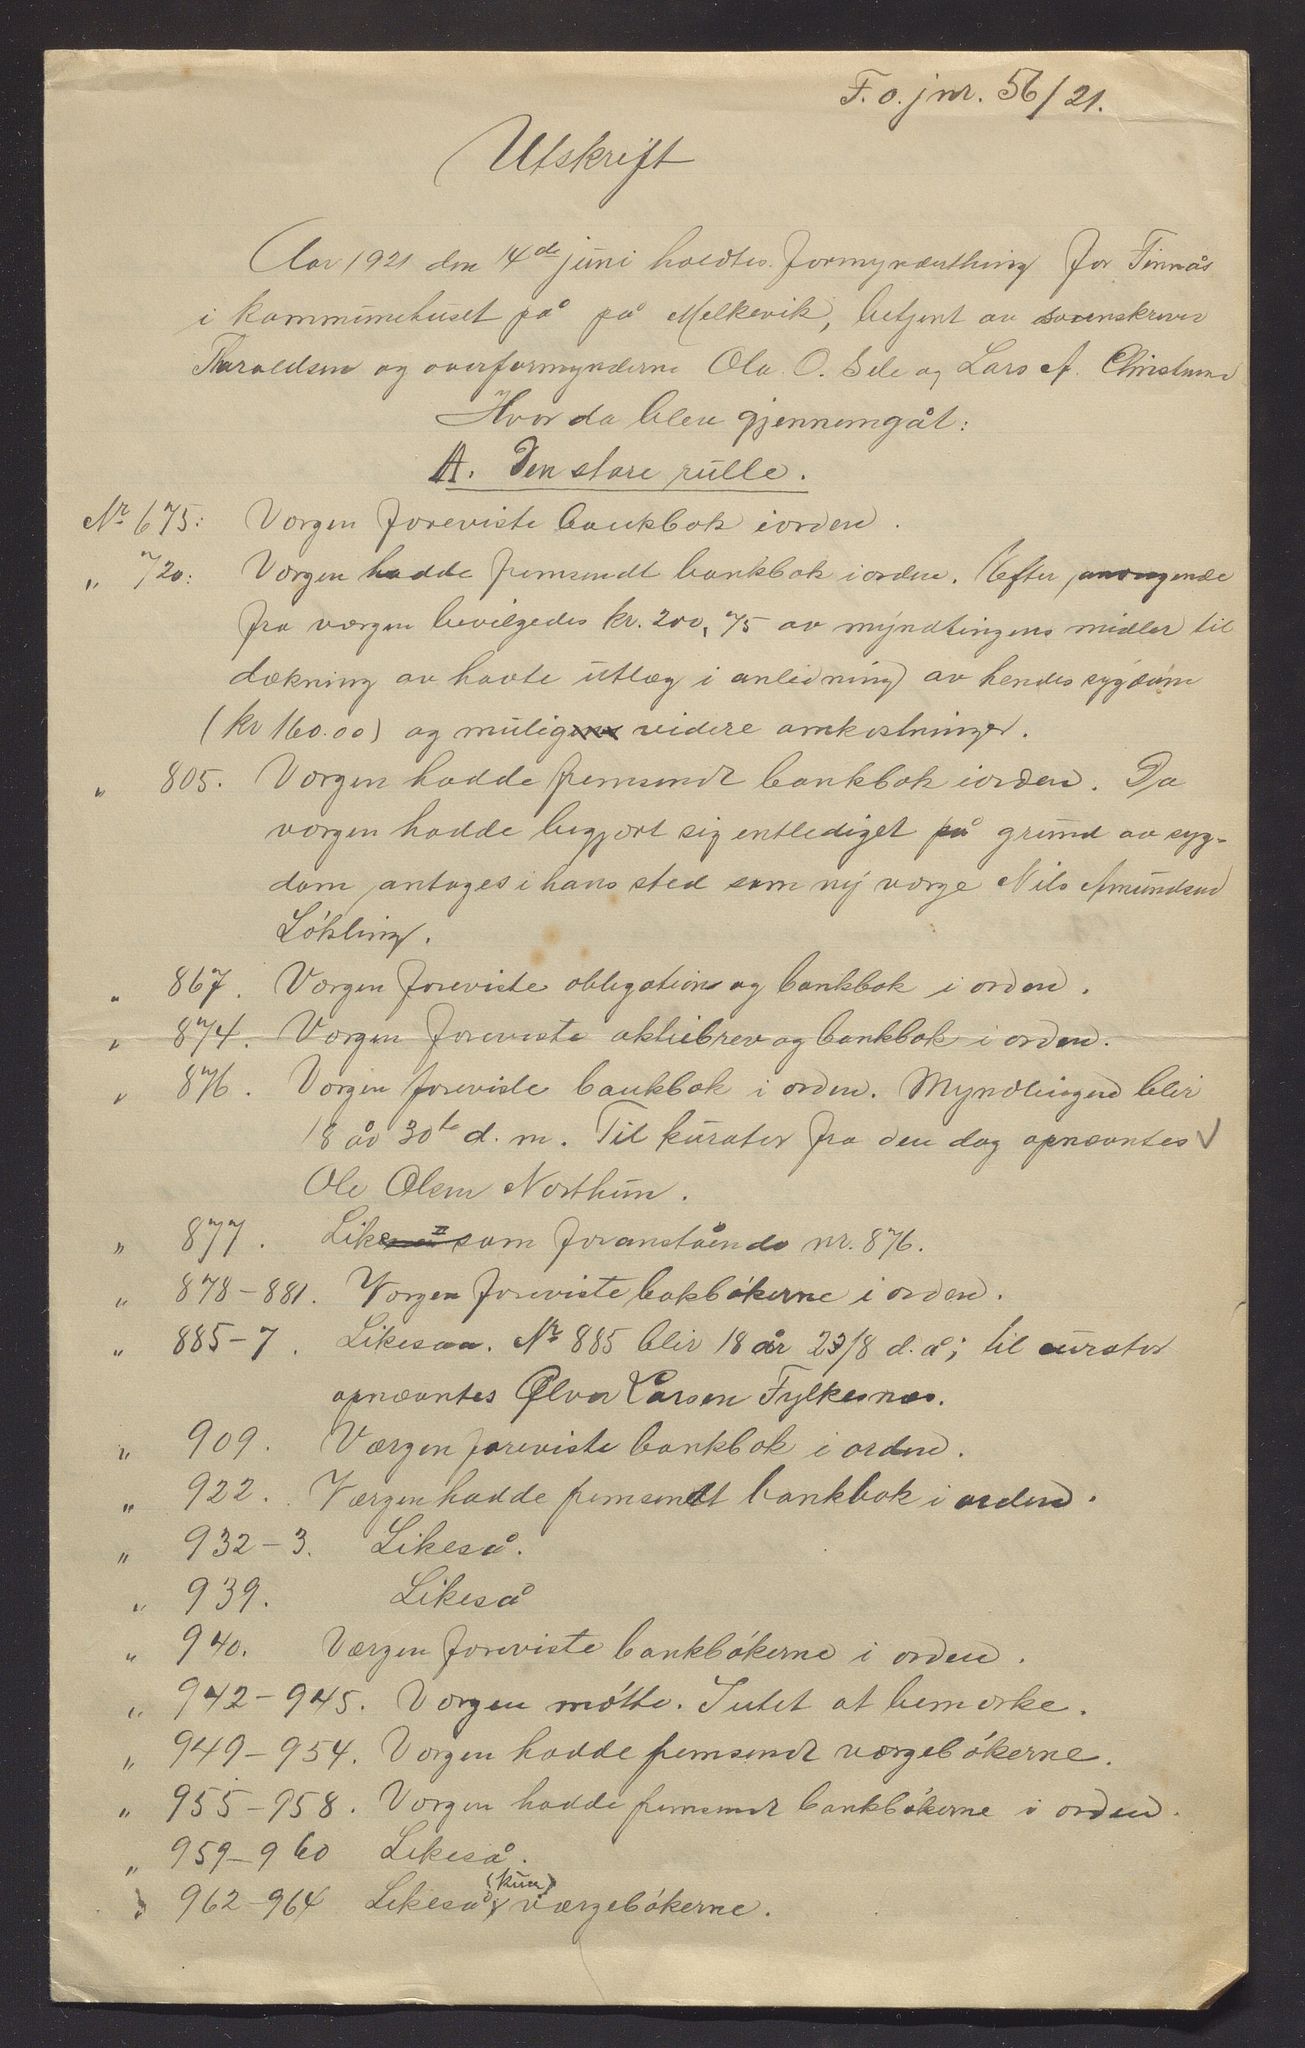 F. o. jnr. 56/21.
Utskrift
Aar 1921 den 14de juni holdtes formynderthing for Finnås
i kommunehuset på på Melkevik, betjent av sorenskriver
Tharaldsen og overformynderne Ola O. Sele og Lars A.
Hvor da blev gjennemgåt:
A. Den store rulle.
Nr 675: Vergen foreviste bankbok iorden.
" 720: Vergen hadde fremsendt bankbok iorden. Efter
fra vergen bevilgedes kr. 200,75 av myndlingens midler til
dækning av havte utlæg i anledning av hendes sygdom
(kr 160.00) og mulig videre omkostninger.
" 805. Vergen hadde fremsendt bankbok iorden. Da
vergen hadde begjært sig entlediget på grund av syg-
dom antoges i hans sted som ny verge Nils Amundsen
Løkling.
" 867. Vergen foreviste obligation og bankbok i orden.
" 874. Vergen foreviste aktiebrev og bankbok i orden.
" 876. Vergen foreviste bankbok i orden. Myndlingen blir
18 år 30te d. m. Til kurator fra den dag opnævntes ✓
Ole Olsen Northun.
" 877. Like som foranstående nr. 876.
" 878-881. Vergen foreviste bokbøkerne i orden.
" 885-7. Likesaa. Nr 885 blir 18 år 23/8 d. å; til curator
opnævntes Ølver Larsen Fylkesnes.
" 909. Værgen foreviste bankbok i orden.
" 922. Værgen hadde fremsendt bankbok i orden.
" 932-3. Likeså.
" 939. Likeså
" 940. Værgen foreviste bankbøkerne i orden.
" 942-945. Vergen møtte. Intet at bemerke.
" 949-954. Vergen hadde fremsendt værgebøkerne.
" 955-958. Vergen hadde fremsendt bankbøkerne i orden.
" 959-960 Likeså.
" 962-964 Likeså (kun) værgebøkerne.